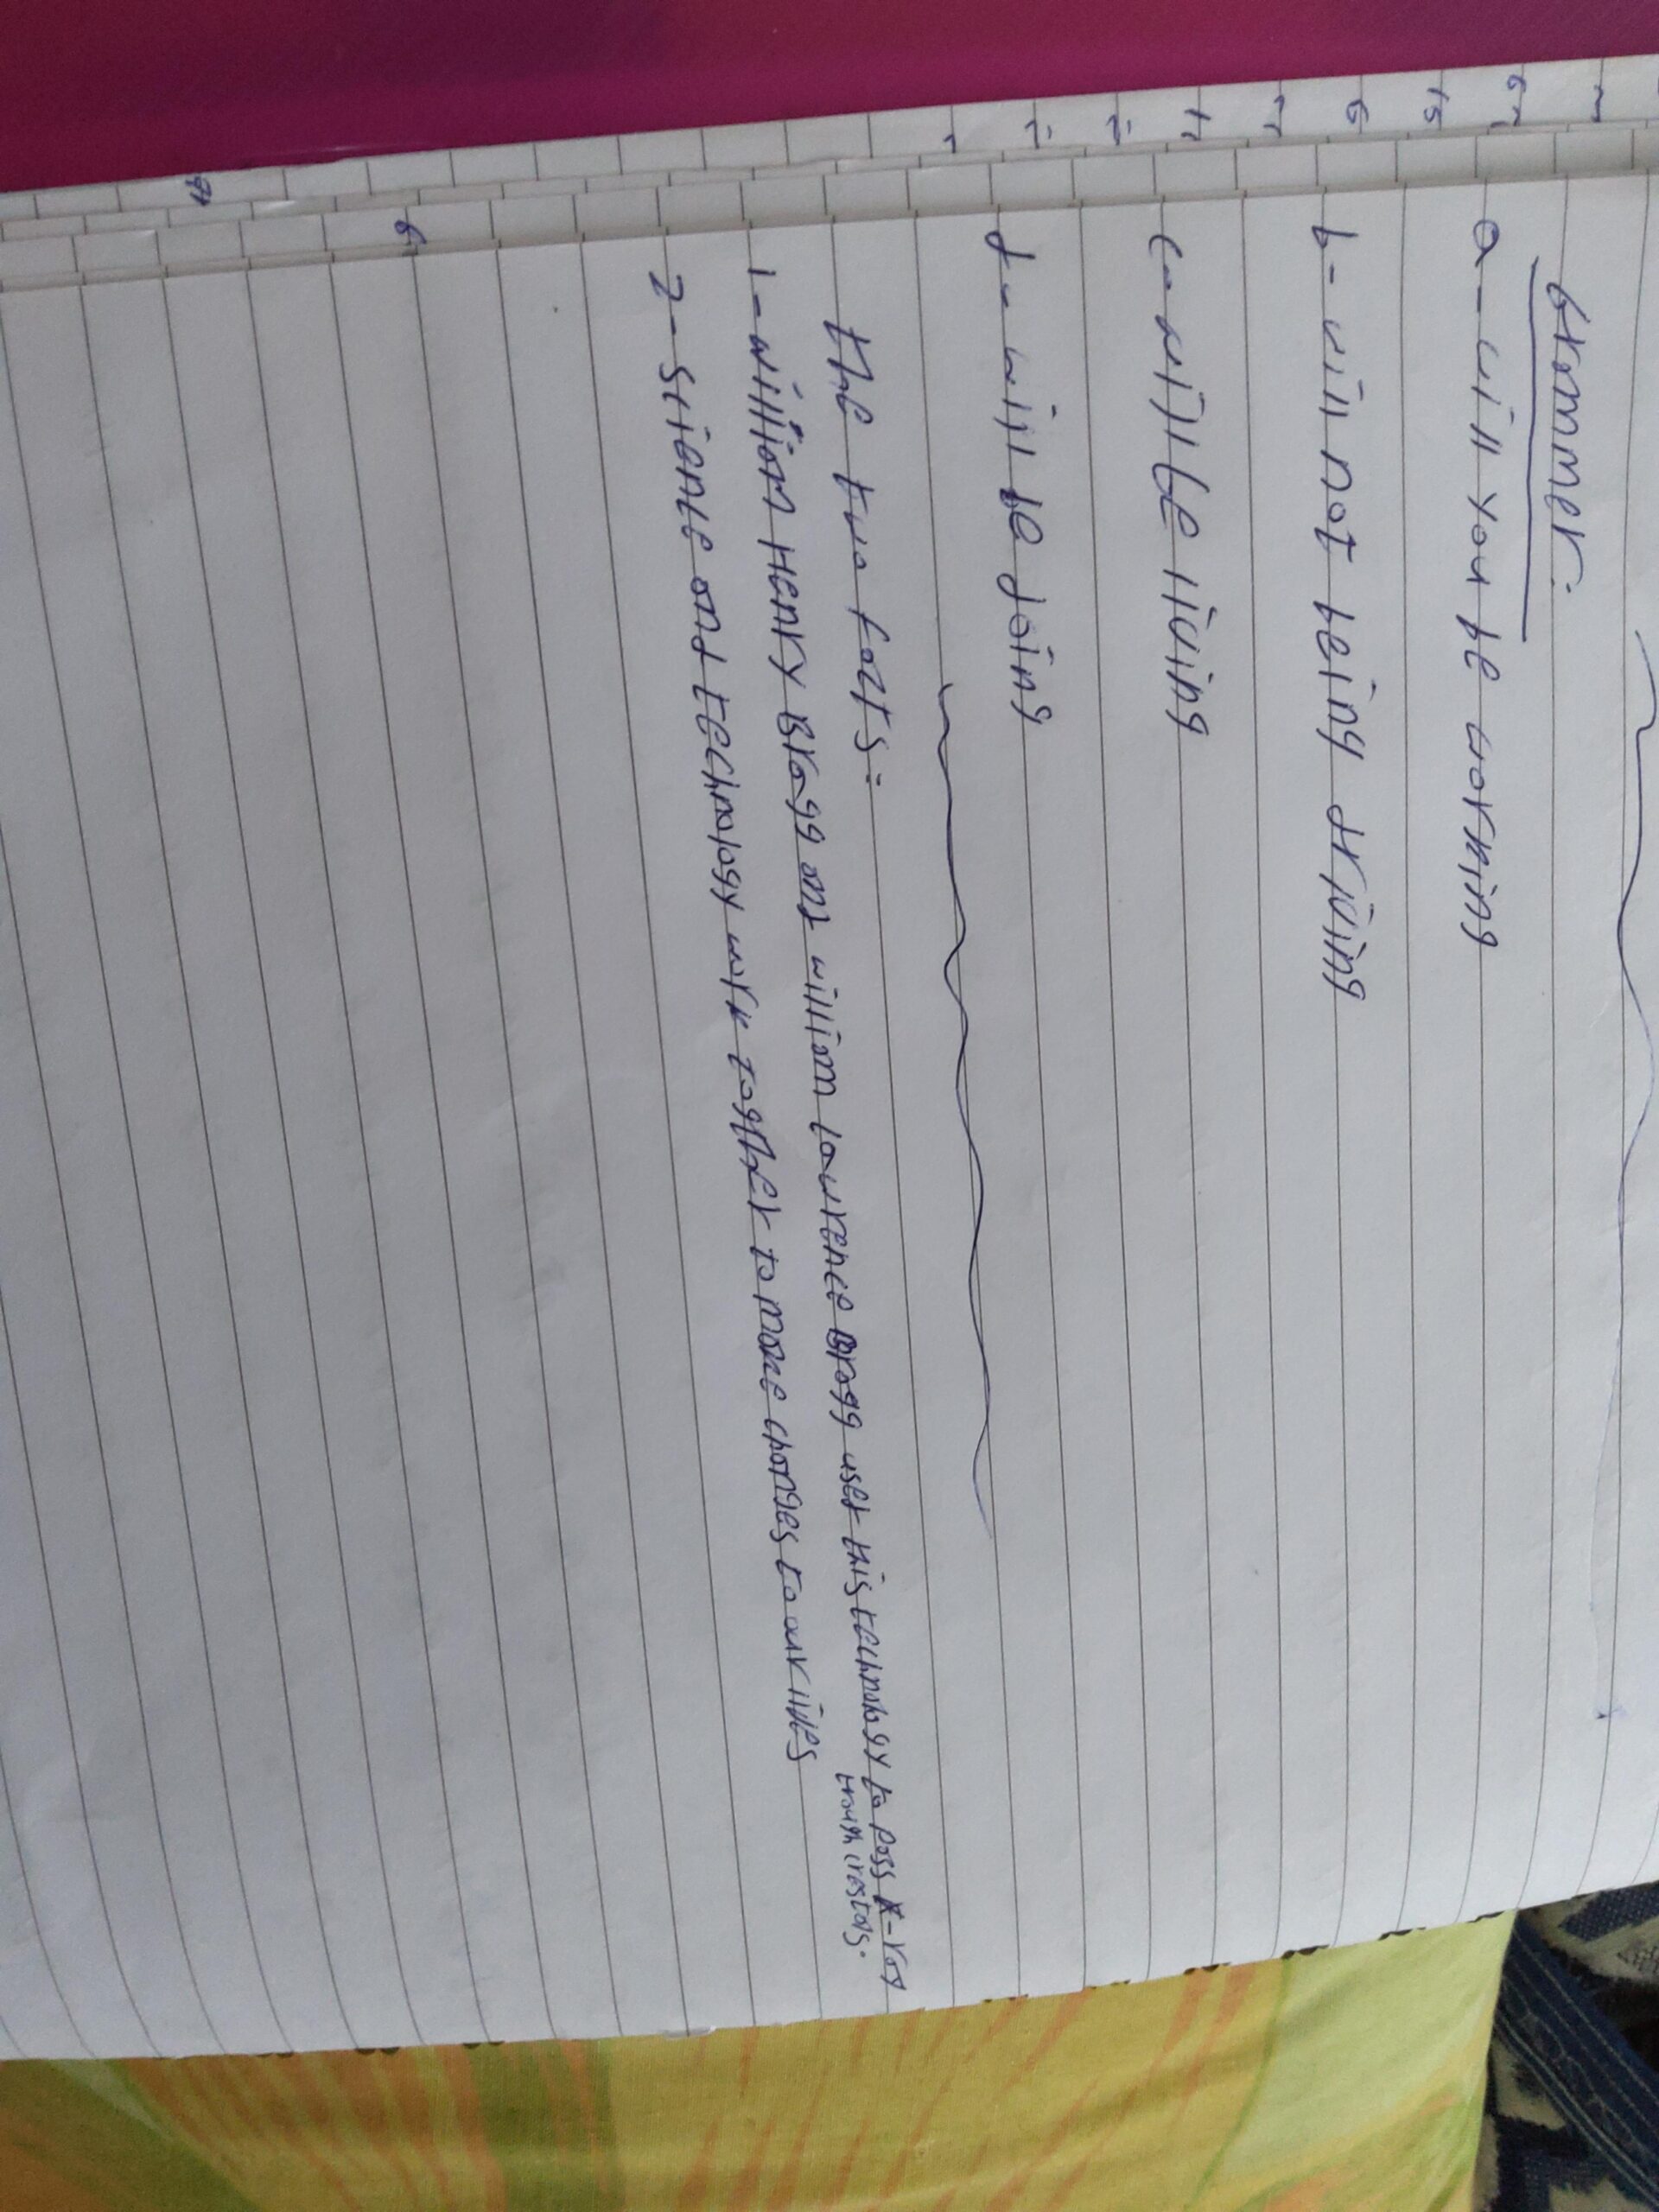 Grammer:
a- will you be working
b- will not being driving
c- will be living
d- will be doing
the two facts:
1- william Henry Bragg and william lawrence Bragg used this technology to pass X-ray
trough crestals.
2- Science and technology work together to make changes to our lives